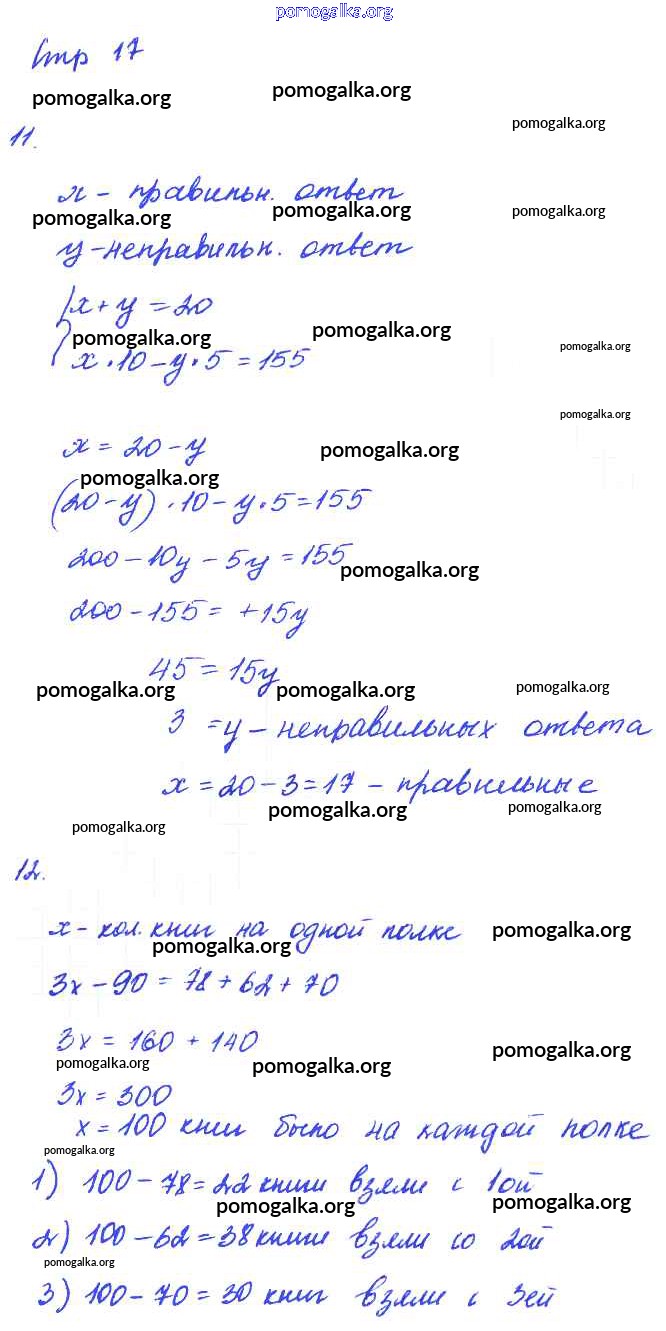 pomogalka.org
Стр 17
pomogalka.org pomogalka.org
pomogalka.org
11.
x - правильн. ответ
pomogalka.org pomogalka.org pomogalka.org
y - неправильн. ответ
{ x + y = 20
pomogalka.org pomogalka.org pomogalka.org
x · 10 - y · 5 = 155
pomogalka.org
x = 20 - y
pomogalka.org pomogalka.org
(20 - y) · 10 - y · 5 = 155
200 - 10y - 5y = 155
pomogalka.org
200 - 155 = + 15y
45 = 15y
pomogalka.org pomogalka.org pomogalka.org
3 = y - неправильных ответа
x = 20 - 3 = 17 - правильные
pomogalka.org pomogalka.org
pomogalka.org
12.
x - кол. книг на одной полке
pomogalka.org pomogalka.org
3x - 90 = 78 + 62 + 70
3x = 160 + 140
pomogalka.org pomogalka.org pomogalka.org
3x = 300
x = 100 книг было на каждой полке
pomogalka.org
1) 100 - 78 = 22 книги взяли с 1ой
pomogalka.org pomogalka.org
2) 100 - 62 = 38 книги взяли со 2ой
pomogalka.org
3) 100 - 70 = 30 книг взяли с 3ей